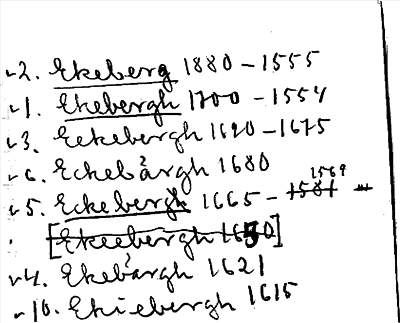 2. Ekeberg 1880 – 1555
1. Ekebergh 1700 – 1554
3. Eekebergh 1690 – 1675
6. Echebårgh 1680
5. Eckebergh 1665 – 1581 1569
[Ekeebergh 1650]
4. Ekebårgh 1621
10. Ekiebergh 1615